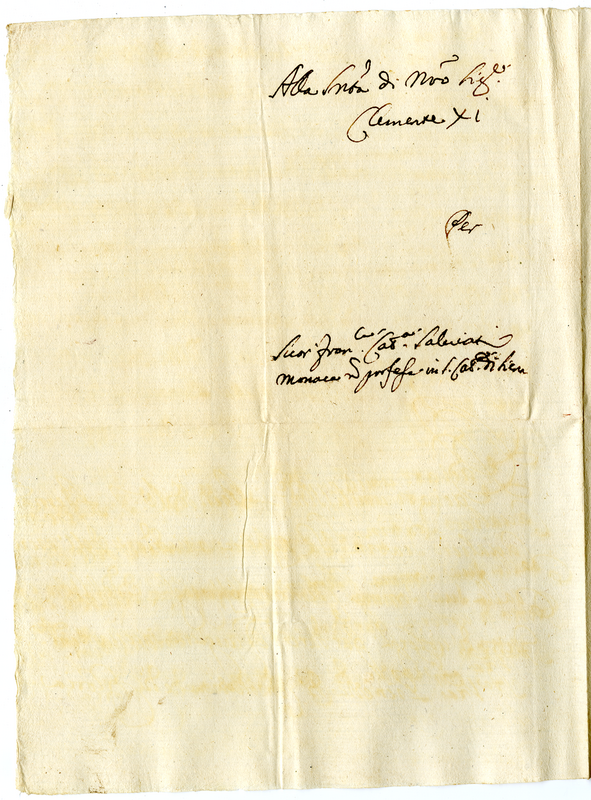 Alla Sntà di Nrõ Sigre
Clemente XI
Per
Suor Franca Cata Salviati
Monaca professa in S. Cata di